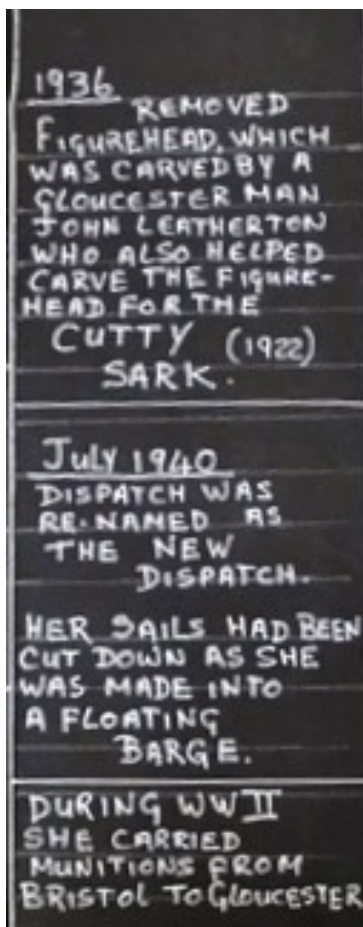 1936
REMOVED
FIGUREHEAD, WHICH
WAS CARVED BY A
GLOUCESTER MAN
JOHN LEATHERTON
WHO ALSO HELPED
CARVE THE FIGURE-
HEAD FOR THE
CUTTY (1922)
SARK.
July 1940
DISPATCH WAS
RE-NAMED AS
THE NEW
DISPATCH.
HER SAILS HAD BEEN
CUT DOWN AS SHE
WAS MADE INTO
A FLOATING
BARGE.
DURING WWII
SHE CARRIED
MUNITIONS FROM
BRISTOL TO GLOUCESTER